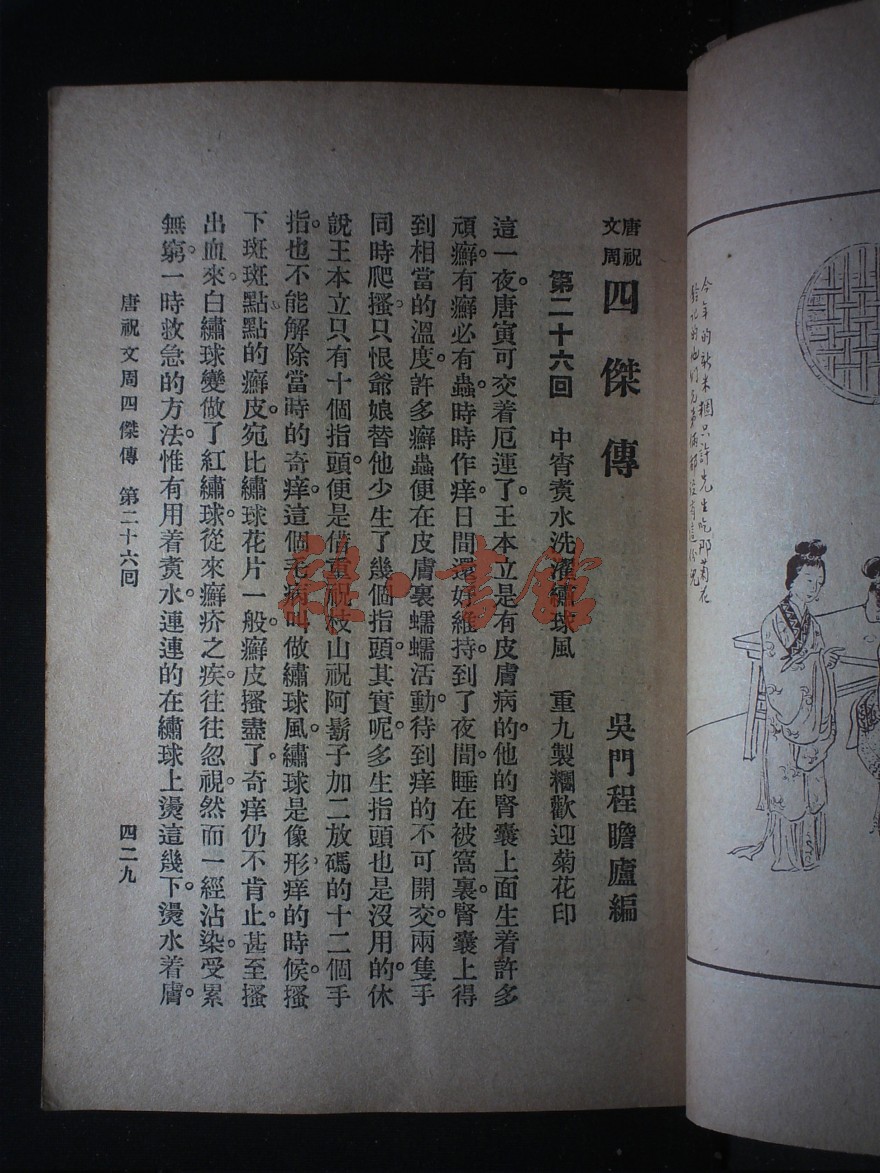 唐祝
文周
四傑傳
吳門程瞻廬編
第二十六回 中宵煑水洗濯繡球風 重九製糰歡迎菊花印
這一夜。唐寅可交着厄運了。王本立是有皮膚病的。他的腎囊上面生着許多
頑癬。有癬必有蟲。時時作痒。日間還好維持。到了夜間。睡在被窩裏。腎囊上得
到相當的溫度。許多癬蟲便在皮膚裏蠕蠕活動。待到痒的不可開交。兩隻手
同時爬搔。只恨爺娘替他少生了幾個指頭。其實呢。多生指頭也是沒用的。休
說王本立只有十個指頭。便是借重祝枝山祝阿鬍子加二放碼的十二個手
指。也不能解除當時的奇痒。這個毛病叫做繡球風。繡球是像形。痒的時候。搔
下斑斑點點的癬皮。宛比繡球花片一般。癬皮搔盡了。奇痒仍不肯止。甚至搔
出血來。白繡球變做了紅繡球。從來癬疥之疾。往往忽視。然而一經沾染。受累
無窮。一時救急的方法。惟有用着煑水。連連的在繡球上燙這幾下。燙水着膚。
唐祝文周四傑傳 第二十六回 四二九
今年的新米糰只許先生吃那菊花
種·書館